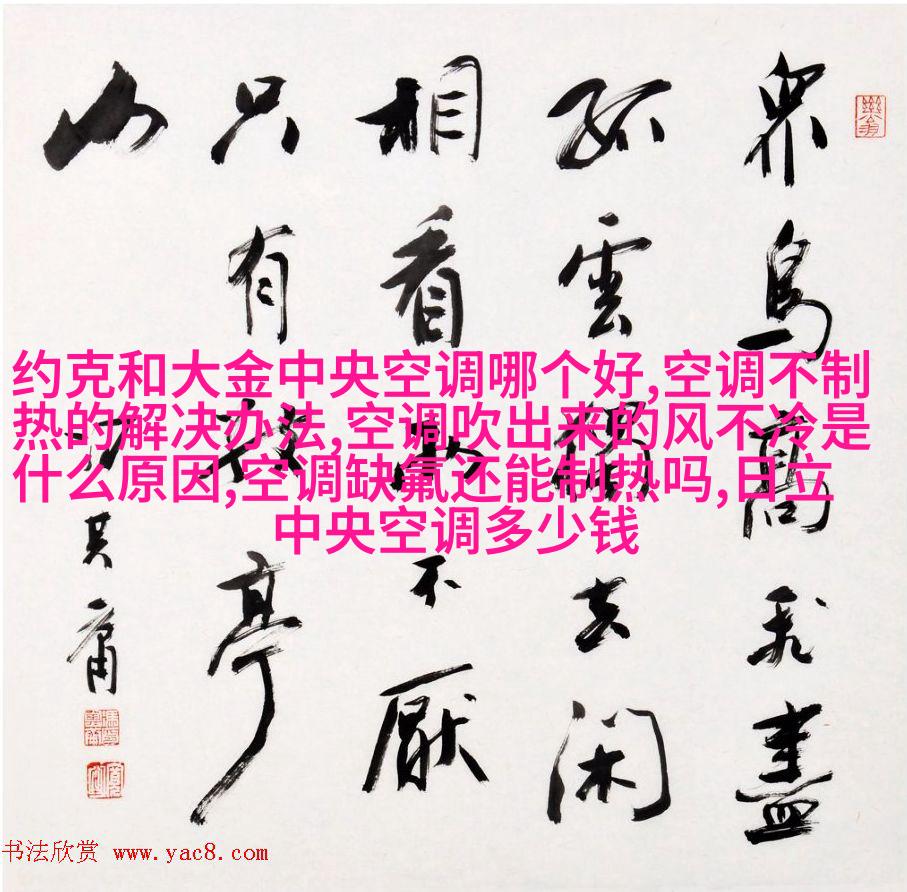 眾鳥高飛盡
孤雲獨去閑
相看兩不厭
只有敬亭
山
约克和大金中央空调哪个好,空调不制
热的解决办法,空调吹出来的风不冷是
什么原因,空调缺氟还能制热吗,日立
中央空调多少钱
书法欣赏 www.yac8.com